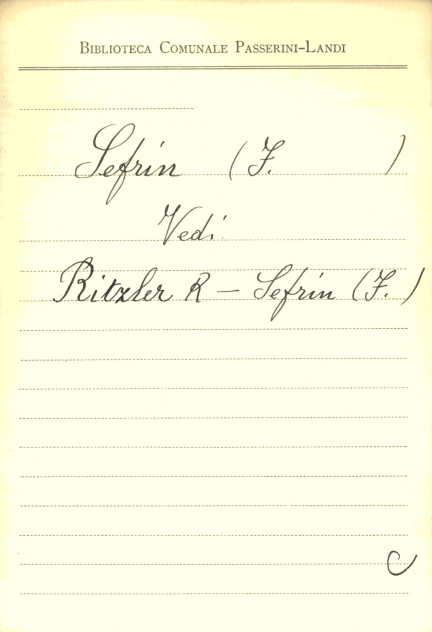 BIBLIOTECA COMUNALE PASSERINI-LANDI
Sefrin (F. )
Vedi
Ritzler R — Sefrin (F. )
C